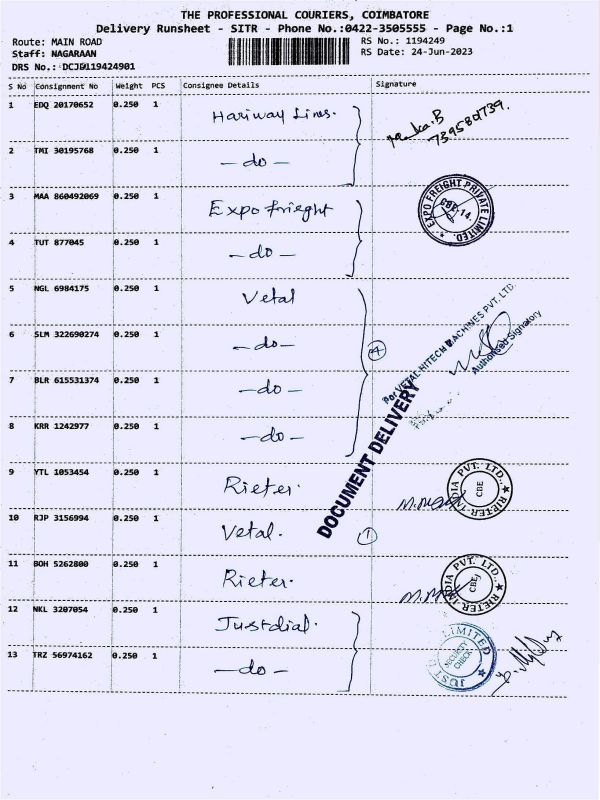 THE PROFESSIONAL COURIERS, COIMBATORE
Delivery Runsheet - SITR - Phone No.:0422-3505555 - Page No.:1
Route: MAIN ROAD RS No.: 1194249
Staff: NAGARAAN RS Date: 24-Jun-2023
DRS No.: DCJD119424901
S No Consignment No Weight PCS Consignee Details Signature
1 EDQ 20170652 0.250 1 Hariway Lines.
2 TMI 30195768 0.250 1 -do-
3 MAA 860492069 0.250 1 Expo frieght EXPO FREIGHT PRIVATE LIMITED. CBE-14.
4 TUT 877045 0.250 1 -do-
5 NGL 6984175 0.250 1 Vetal
For VETAL HITECH MACHINES PVT. LTD.
Authorised Signatory
6 SLM 322690274 0.250 1 -do- 4
7 BLR 615531374 0.250 1 -do-
8 KRR 1242977 0.250 1 -do-
DOCUMENT DELIVERY
9 YTL 1053454 0.250 1 Rieter. RIETER INDIA PVT. LTD. CBE
10 RJP 3156994 0.250 1 Vetal. 1
11 BOH 5262800 0.250 1 Rieter. RIETER INDIA PVT. LTD. CBE
12 NKL 3207054 0.250 1 Justdial. LIMITED SECURITY CHECK
13 TRZ 56974162 0.250 1 -do-